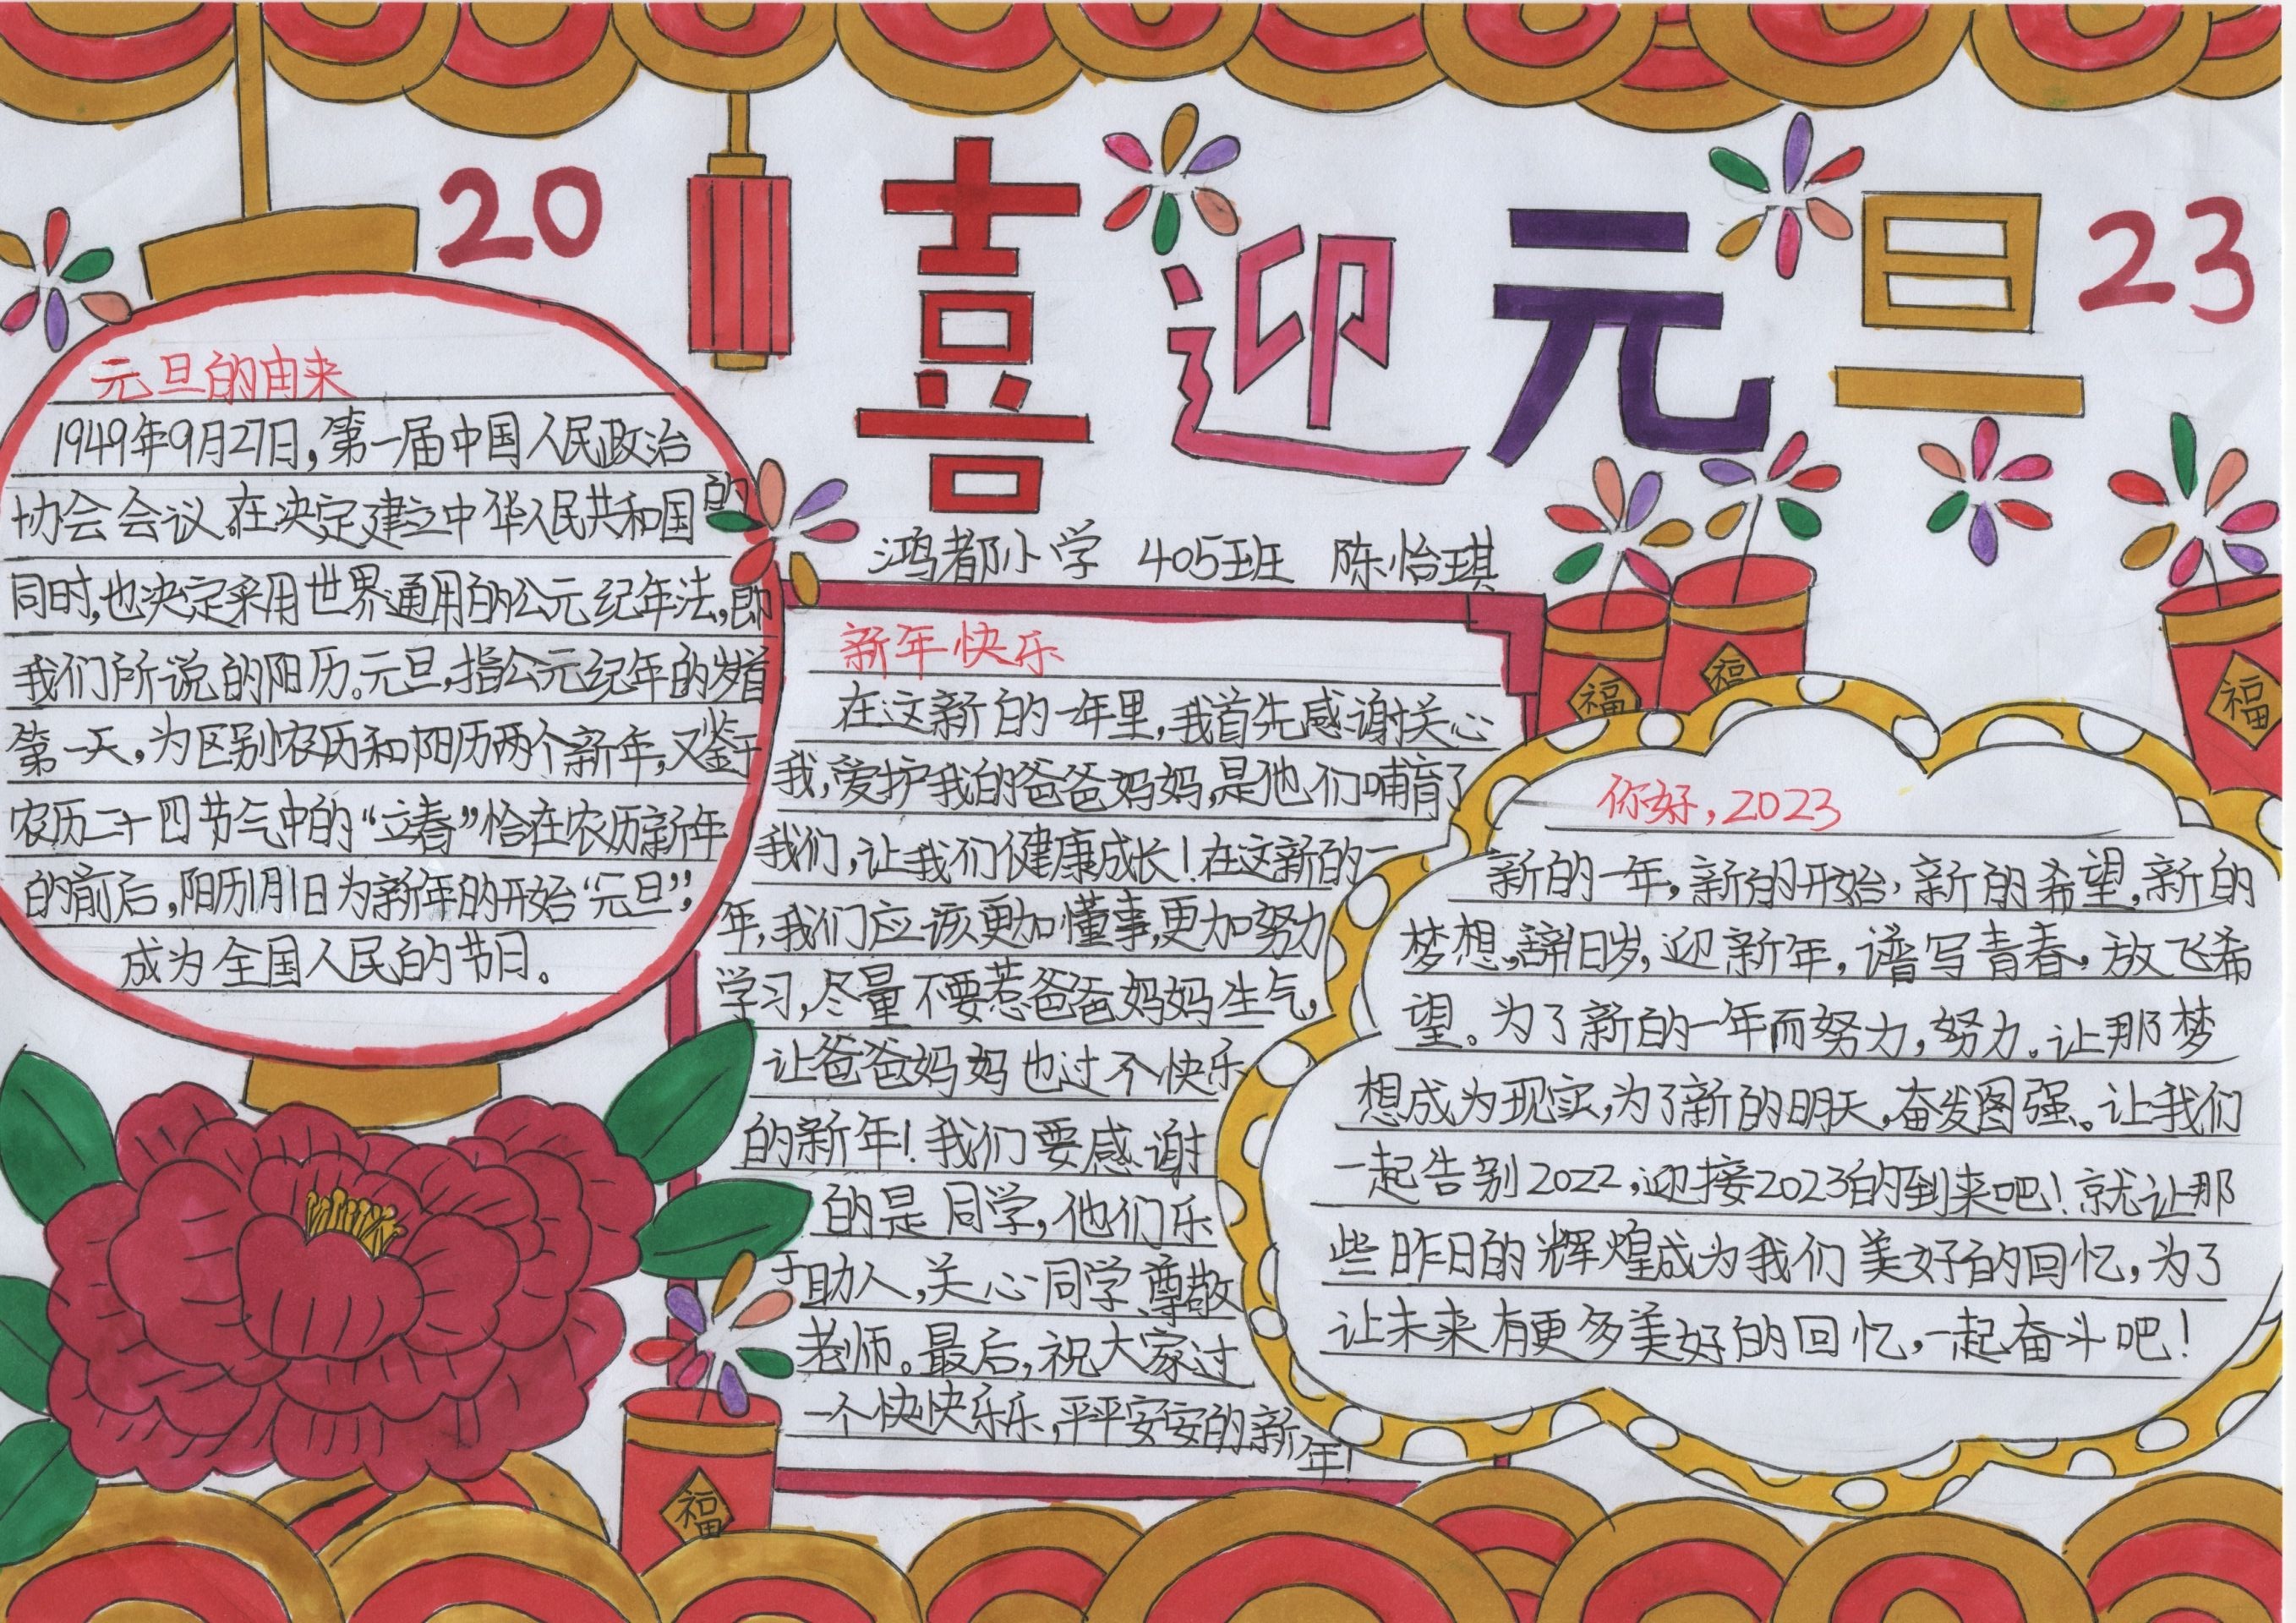 20
喜迎元旦
23
鸿都小学 405班 陈怡琪
元旦的由来
1949年9月27日,第一届中国人民政治
协会会议。在决定建立中华人民共和国的
同时,也决定采用世界通用的公元纪年法,即
我们所说的阳历。元旦,指公元纪年的岁首
第一天,为区别农历和阳历两个新年,又鉴于
农历二十四节气中的“立春”恰在农历新年
的前后,阳历1月1日为新年的开始“元旦”,
成为全国人民的节日。
新年快乐
在这新的一年里,我首先感谢关心
我,爱护我的爸爸妈妈,是他们哺育了
我们,让我们健康成长!在这新的一
年,我们应该更加懂事,更加努力
学习,尽量不要惹爸爸妈妈生气,
让爸爸妈妈也过个快乐
的新年!我们要感谢
的是同学,他们乐
于助人,关心同学、尊敬
老师。最后,祝大家过
一个快快乐乐,平平安安的新
年!
你好,2023
新的一年,新的开始,新的希望,新的
梦想,辞旧岁,迎新年,谱写青春,放飞希
望。为了新的一年而努力,努力。让那梦
想成为现实,为了新的明天,奋发图强。让我们
一起告别2022,迎接2023的到来吧!就让那
些昨日的辉煌成为我们美好的回忆,为了
让未来有更多美好的回忆,一起奋斗吧!
福
福
福
福